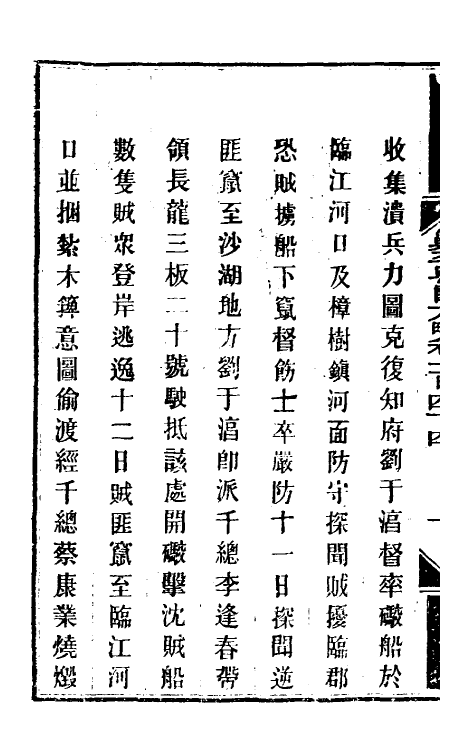 收集潰兵力圖克復知府劉于潯督率礮船於
臨江河口及樟樹鎮河面防守探聞賊擾臨郡
恐賊擄船下竄督飭士卒嚴防十一日探聞逆
匪竄至沙湖地方劉于潯卽派千總李逢春帶
領長龍三板二十號駛抵該處開礮擊沈賊船
數隻賊眾登岸逃逸十二日賊匪竄至臨江河
口並捆紮木簰意圖偷渡經千總蔡康業燒燬